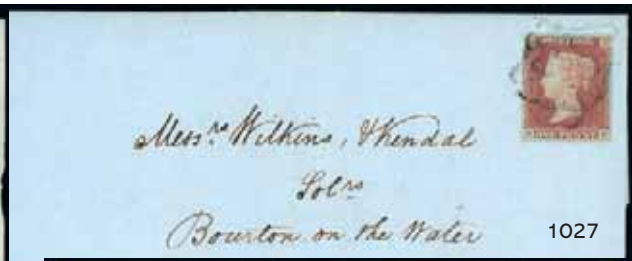 Messrs Wilkins, & Kendal
Solrs
Bourton on the Water
1027
ONE PENNY